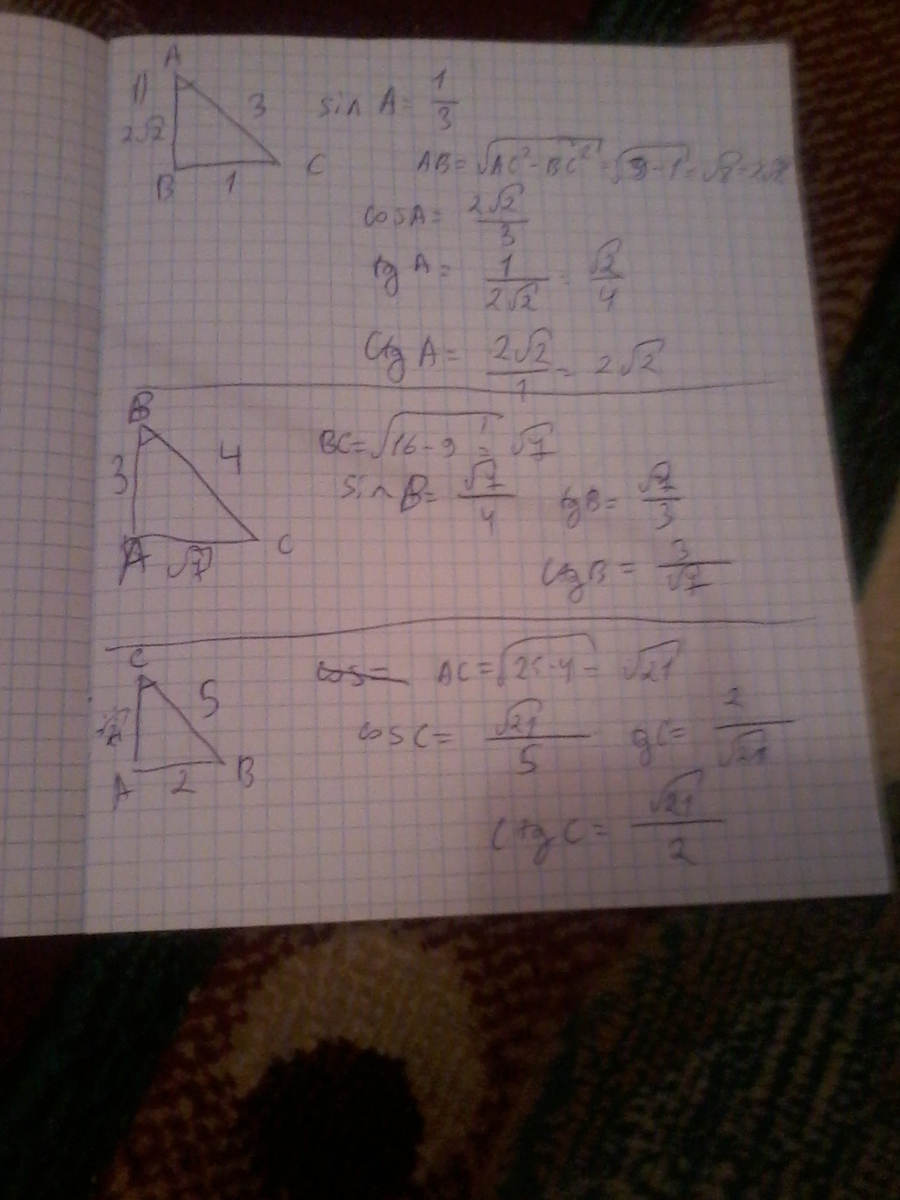 A
1)
3
2√2
B
1
C
sin A = 1/3
AB = √(AC² - BC²) = √(9-1) = √8 = 2√2
cos A = 2√2/3
tg A = 1/2√2 = √2/4
Ctg A = 2√2/1 = 2√2
B
3
4
A
√7
C
BC = √(16-9) = √7
sin B = √7/4
tg B = √7/3
Ctg B = 3/√7
C
5
A
2
B
cos =
AC = √(25-4) = √21
cos C = √21/5
tg C = 2/√21
Ctg C = √21/2